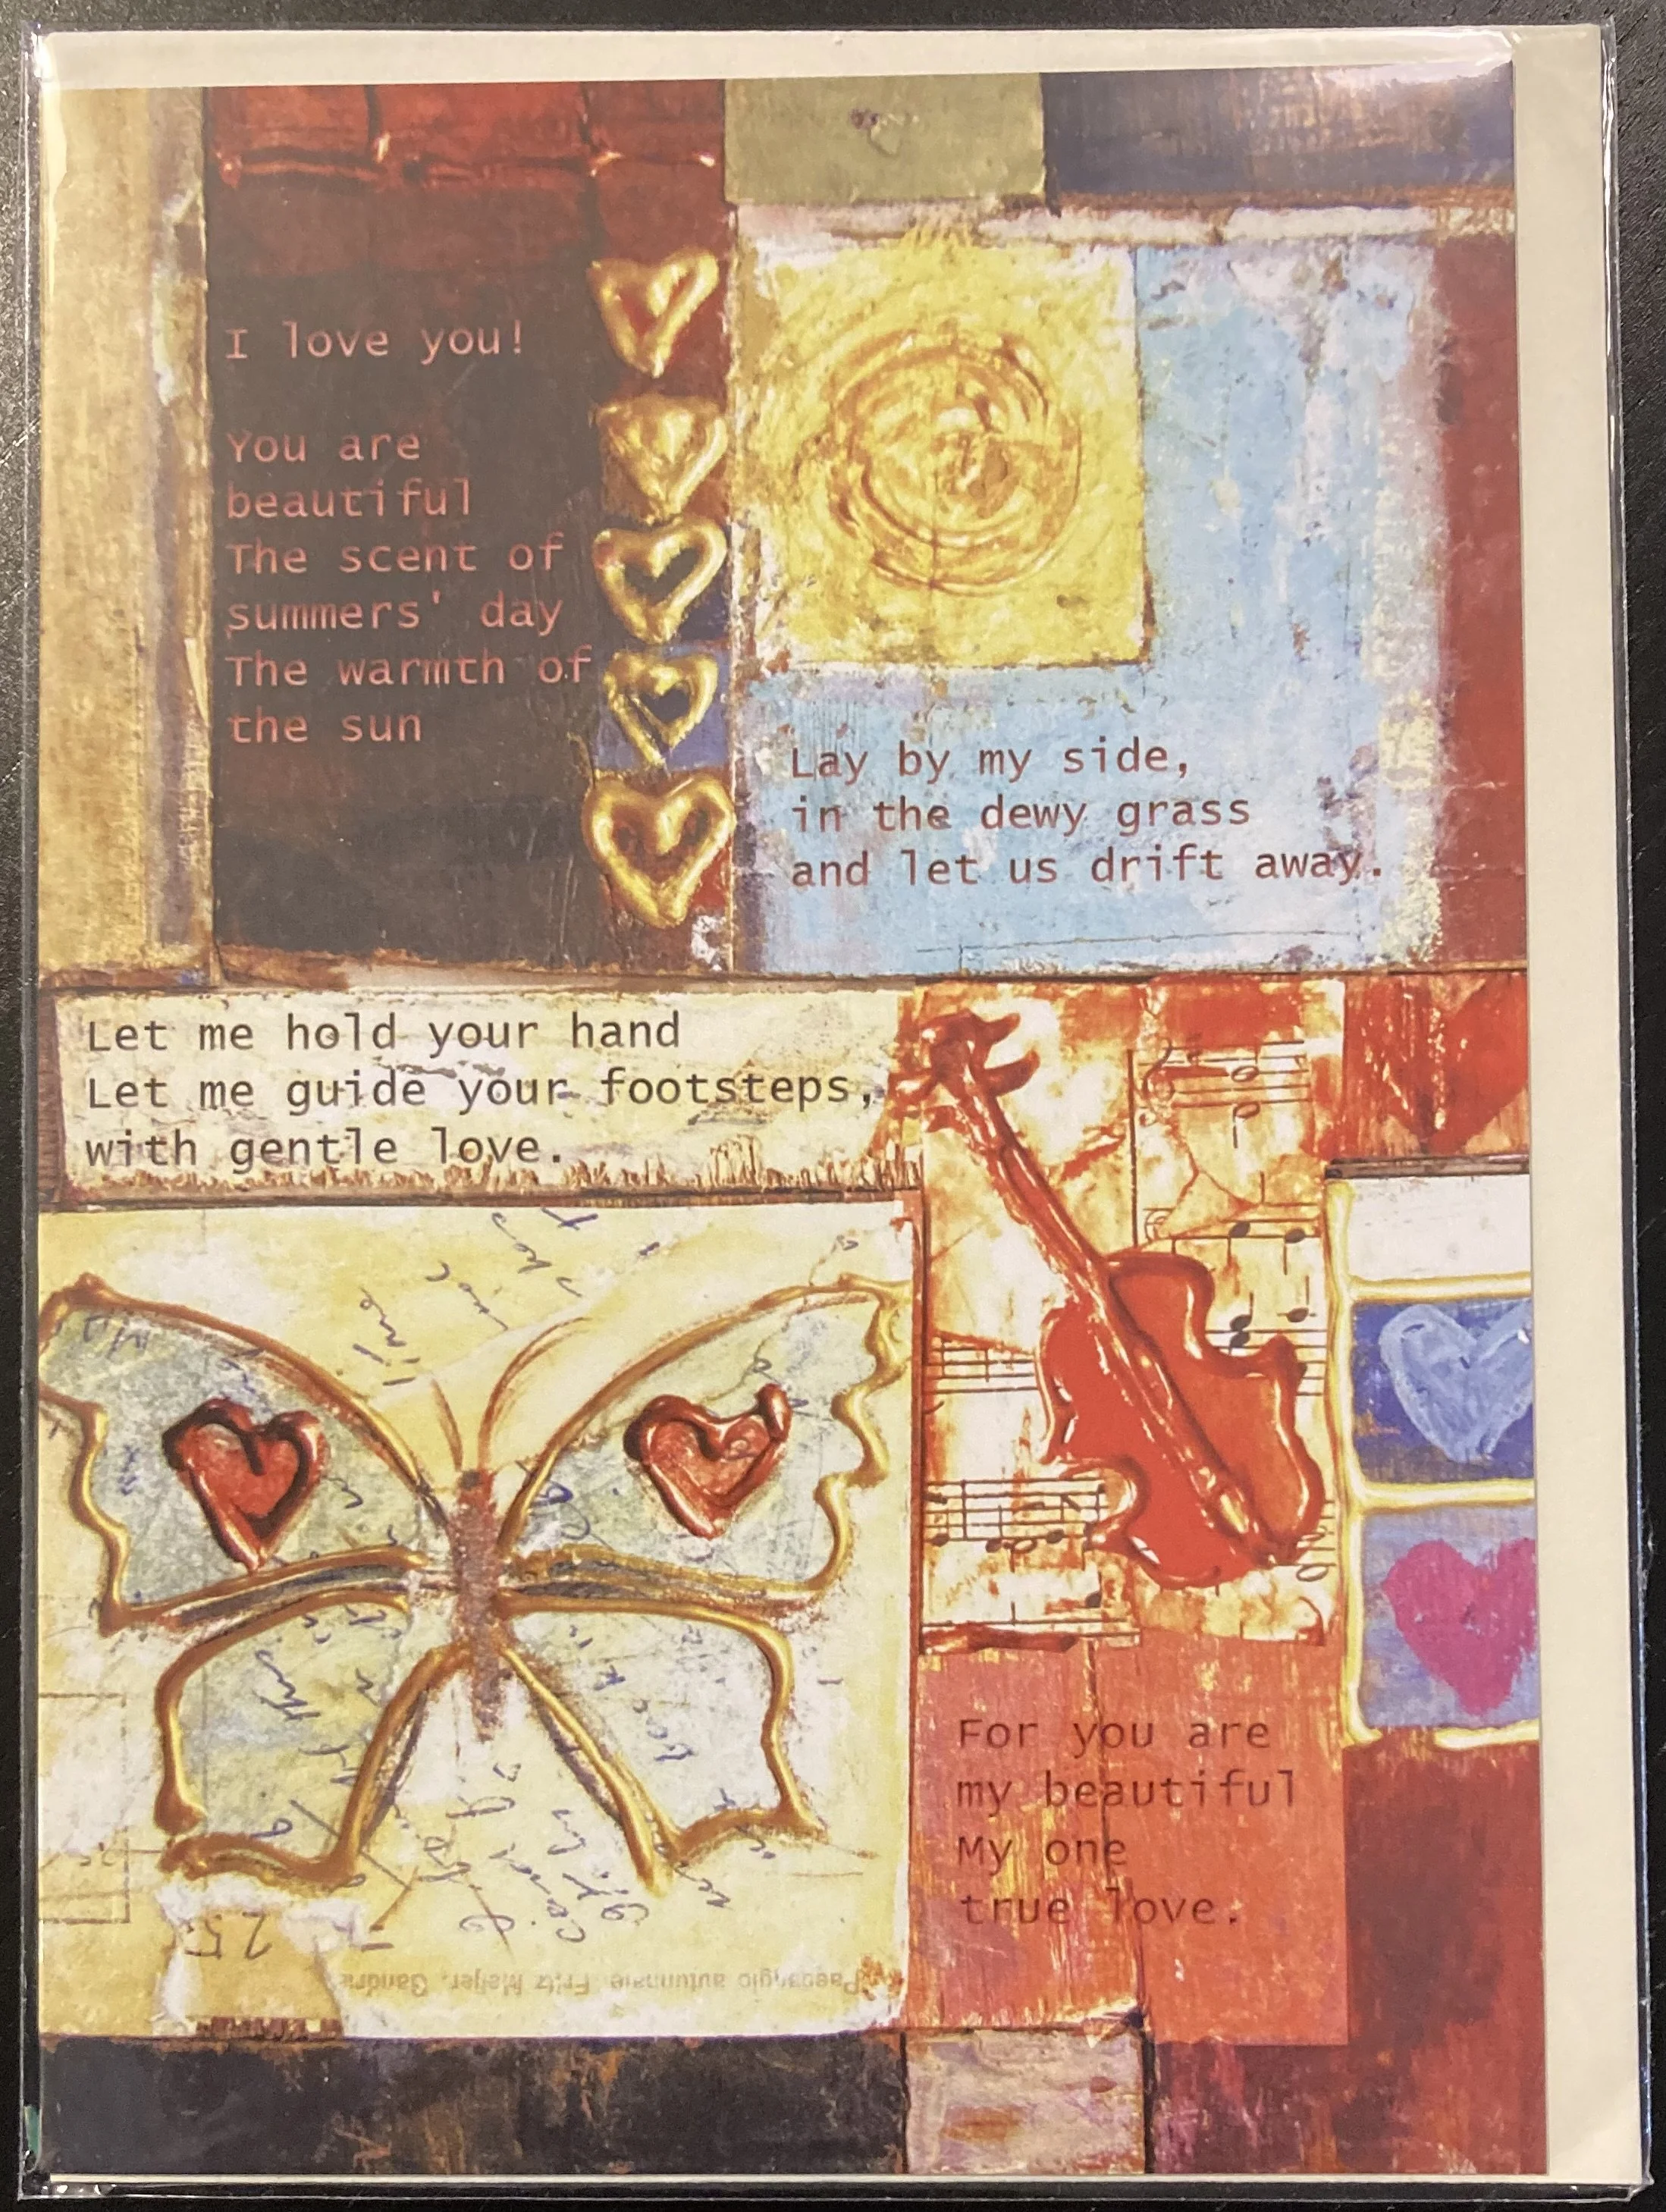 I love you!
You are
beautiful
The scent of
summers' day
The warmth of
the sun
Lay by my side,
in the dewy grass
and let us drift away.
Let me hold your hand
Let me guide your footsteps,
with gentle love.
For you are
my beautiful
My one
true love.
time
25
Paesaggio autunnale, Fritz Meijer, Gandria